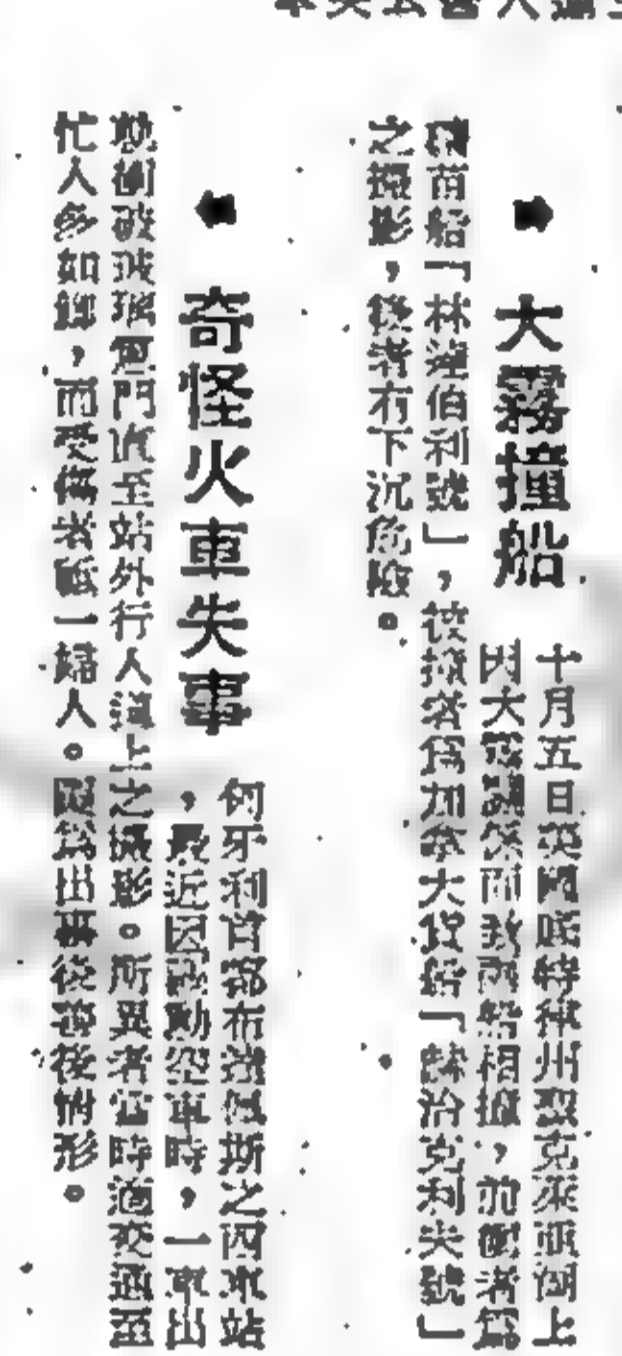 大霧撞船
十月五日英國底特律州聖克來亞湖上
因大霧瀰漫而致兩船相撞,前衝者為
苗船「林 伯利號」,被撞者為加拿大貨船「 治克利夫號」
之攝影,後者有下沉危險。
奇怪火車失事
匈牙利首都布達佩斯之西車站
,最近因 動空車時,一車出
軌衝破玻璃 門直至站外行人道上之攝影。所異者當時適交通至
忙人多如鯽,而受傷者祇一婦人。圖為出事後 後情形。